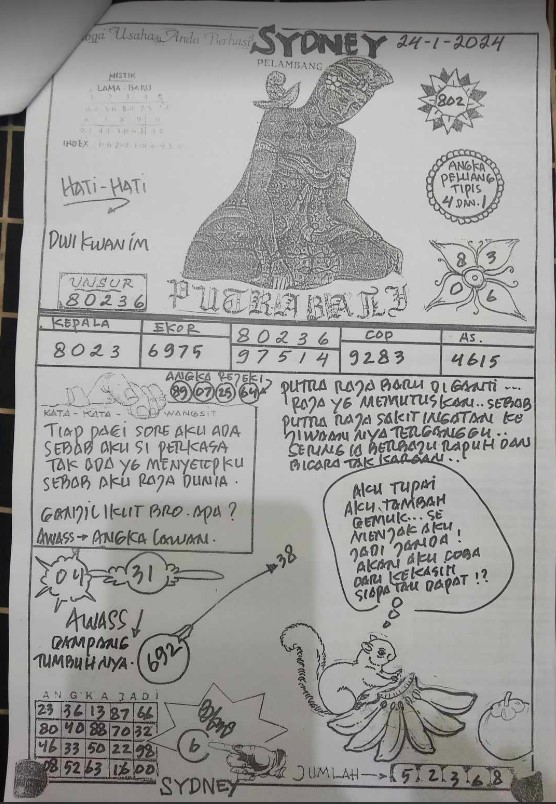 Usaha Anda Berhasil
SYDNEY 24-1-2024
PELAMBANG
MISTIK
LAMA - BARU
INDEX
802
HATI-HATI
ANGKA
PELUANG
TIPIS
4 DAN. 1
DWI KWAN IM
8 3
0 6
UNSUR
80236
PUTRA BALI
KEPALA
8023
EKOR
6975
80236
97514
COP
9283
AS.
4615
ANGKA REJEKI
89 07 25 64
KATA - KATA - WANGSIT
TIAP PAGI SORE AKU ADA
SEBAB AKU SI PERKASA
TAK ADA YG
SEBAB AKU RAJA DUNIA.
GANJIL IKUT BRO. APA?
AWASS → ANGKA LAWAN.
PUTRA RAJA BARU DI GANTI ...
RAJA YG MEMUTUSKAN.. SEBAB
PUTRA RAJA SAKIT INGATAN KE
JIWAAN NYA TERGANGGU..
SERING IA BERBAJU RAPUH DAN
BICARA TAK KARUAN..
AKU TUPAI
AKU TAMBAH
GEMUK... SE
MENJAK AKU
JADI JANDA!
AKAN AKU COBA
CARI KEKASIH
SIAPA TAU DAPAT!?
04 31
38
AWASS
GAMPANG
TUMBUH NYA.
692
ANGKA JADI
23 36 13 87 66
80 40 88 70 32
46 33 50 22 98
08 52 63 16 00
6
SYDNEY
JUMLAH → 5 2 3 6 8